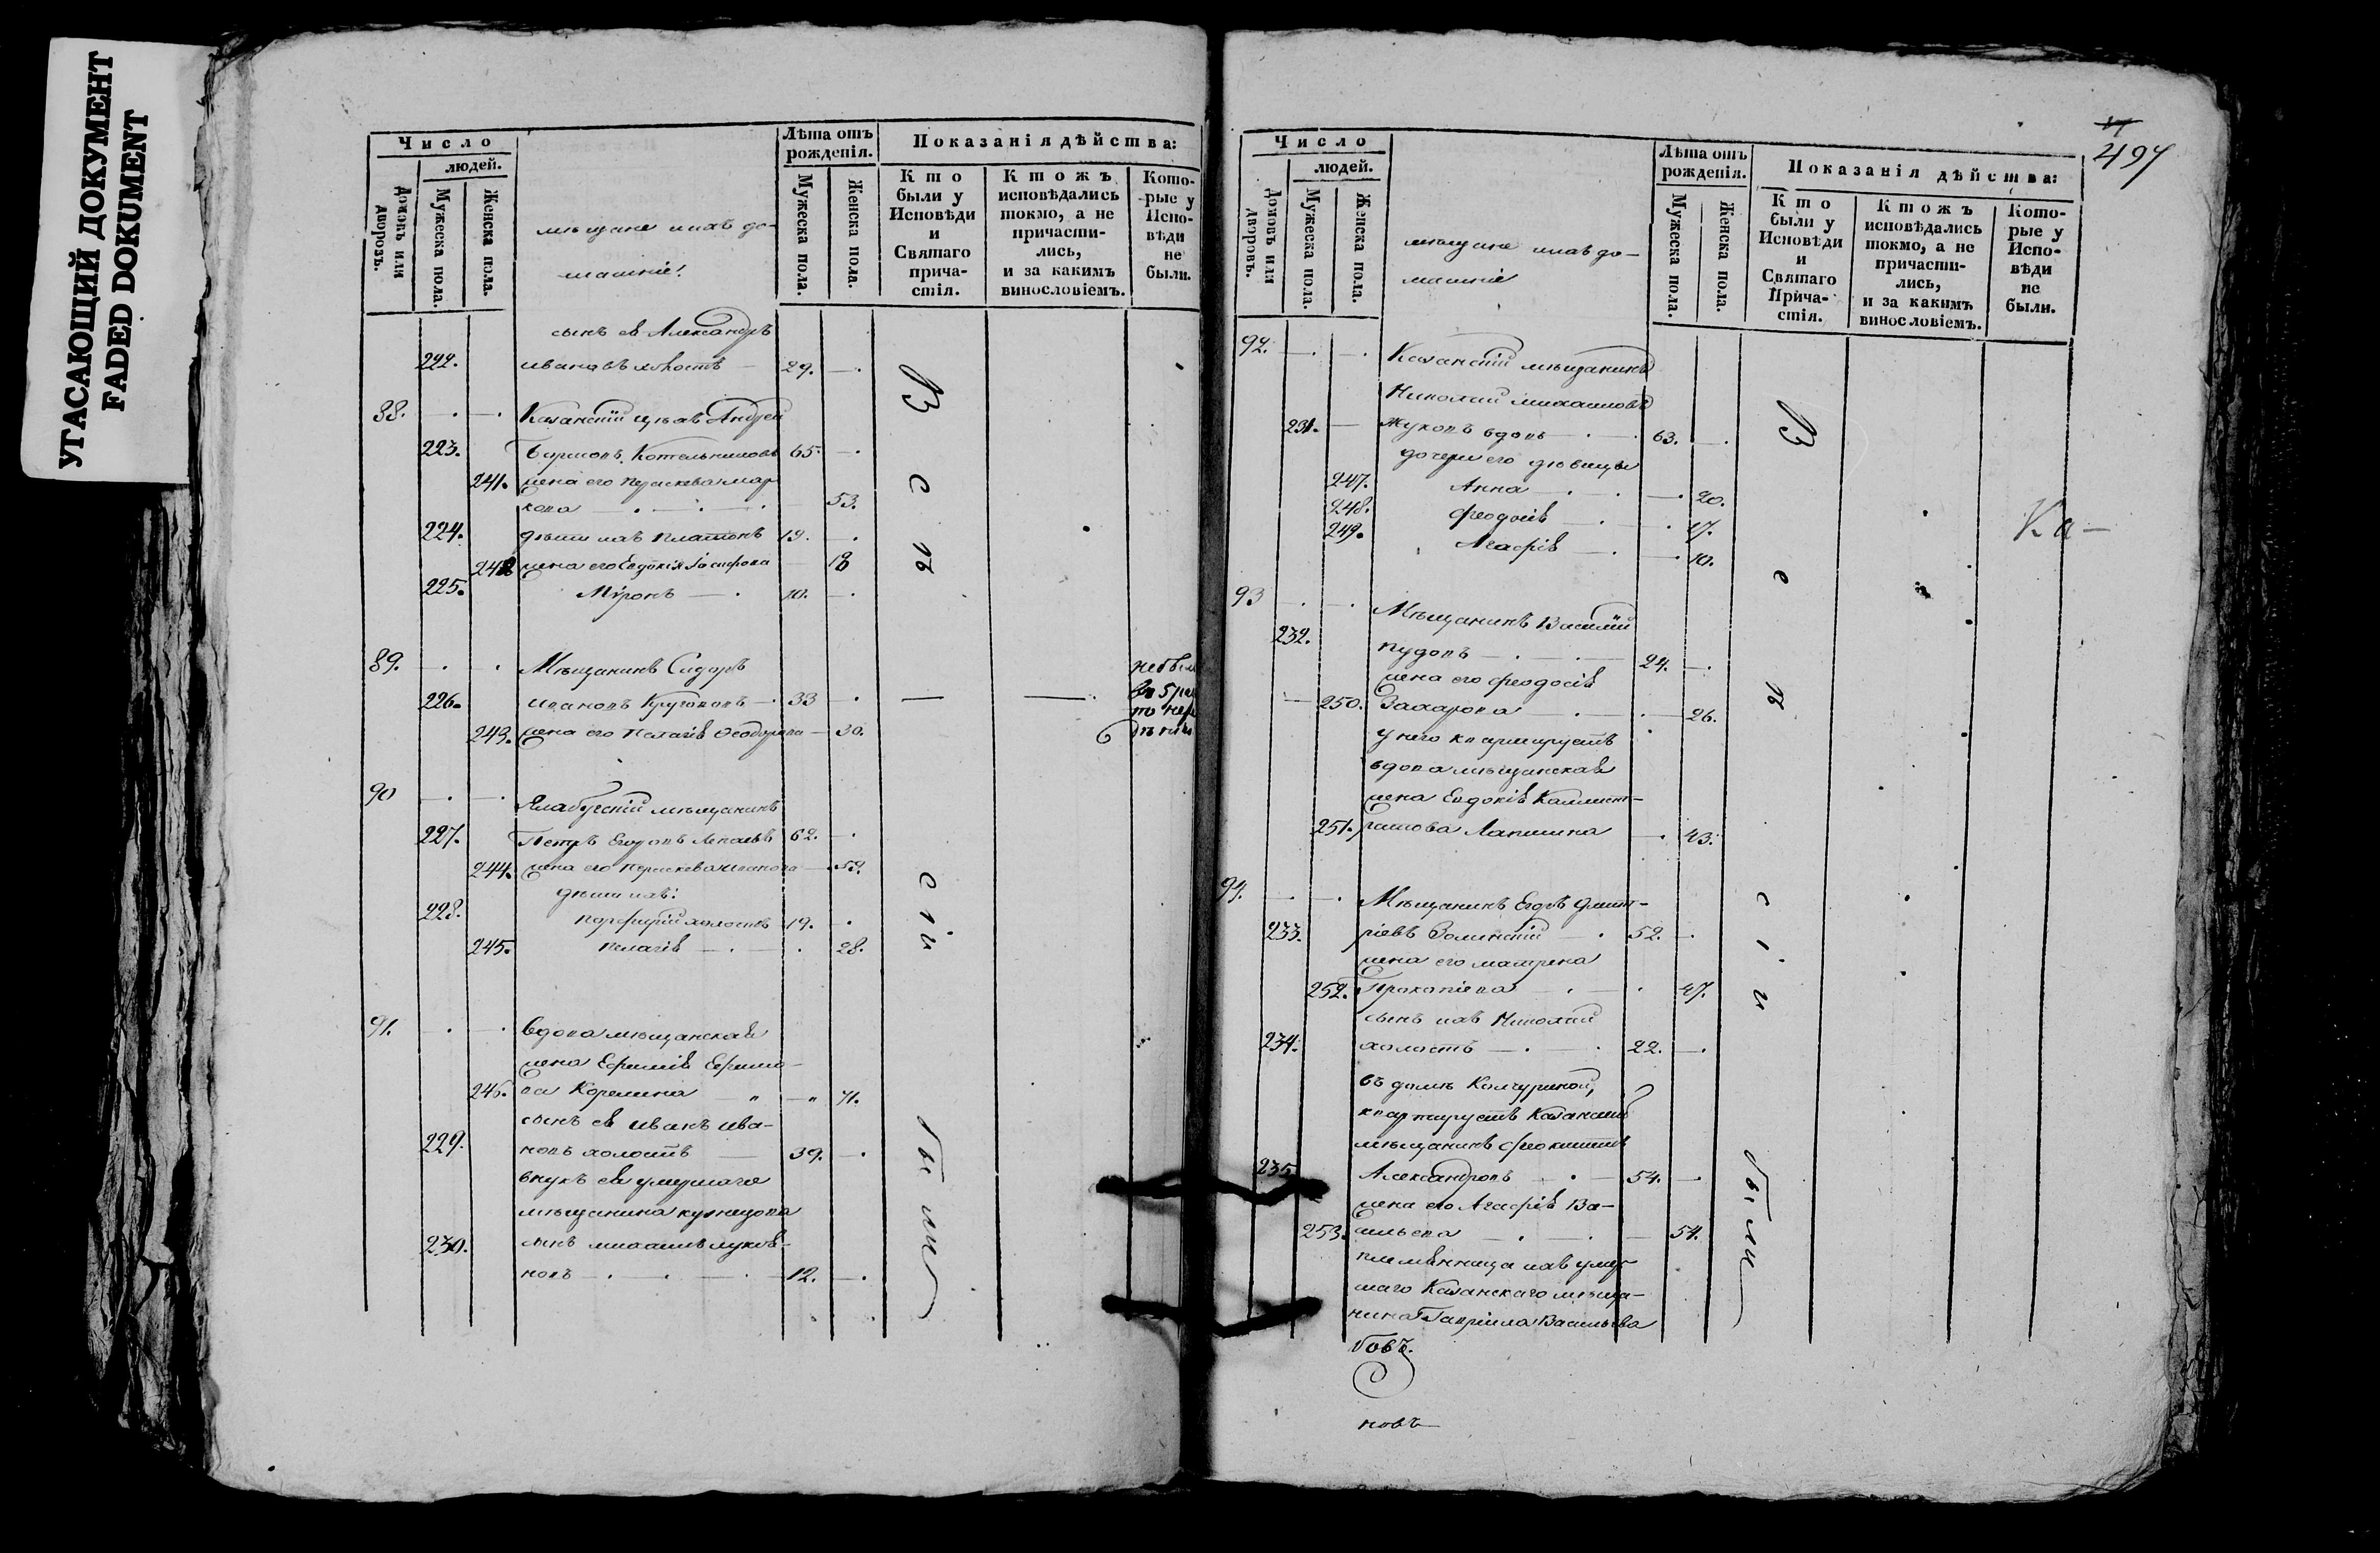 УГАСАЮЩИЙ ДОКУМЕНТ
FADED DOKUMENT
Число
людей.
Домовъ или дворовъ.
Мужеска пола.
Женска пола.
мѣщане и ихъ до-
машніе
Лѣта отъ рожденія.
Мужеска пола.
Женска пола.
Показанія дѣйства:
Кто были у Исповѣди и Святаго причастія.
Кто жъ исповѣдались токмо, а не причастились, и за какимъ винословіемъ.
Которые у Исповѣди не были.
сынъ ея Александръ
222. Ивановъ холостъ — 29.
88. Казанскій Андрей
223. Борисовъ Котельниковъ 65.
241. жена его Параскева Мар
кова 53.
224. дѣти ихъ Платонъ 19.
242 жена его Евдокія Іосифова 18
225. Мѵронъ 10.
89. Мѣщанинъ Сидоръ
226. Ивановъ Круговъ 33
243. жена его Пелагія Ѳеодорова 30.
90 Елабугскій мѣщанинъ
227. Петръ Егоровъ 62.
244. жена его Параскева Иванова 52.
дѣти ихъ:
228. Порфирій холостъ 19.
245. Пелагія 28.
91. Вдова мѣщанская
жена Ефимія Ефимо-
246. ва Корелина 71.
сынъ ея Иванъ Ива-
229. новъ холостъ 39.
внукъ ея умершаго
мѣщанина Кузнецова
230. сынъ Михаилъ Лукоя-
новъ 12.
Въ
сѣ
сіи
были
497
Число
людей.
Домовъ или дворовъ.
Мужеска пола.
Женска пола.
мѣщане и ихъ до-
машніе
Лѣта отъ рожденія.
Мужеска пола.
Женска пола.
Показанія дѣйства:
Кто были у Исповѣди и Святаго Причастія.
Кто жъ исповѣдались токмо, а не причастились, и за какимъ винословіемъ.
Которые у Исповѣди не были.
92. Казанскій мѣщанинъ
Николай Михайловъ
231. Жуковъ вдовъ 63.
дочери его дѣвицы
247. Анна 20.
248. Феодосія 17.
249. Агафія 10.
93 Мѣщанинъ Василій
232. Пудовъ 24.
жена его Феодосія
250. Захарова 26.
у него квартируетъ
вдова мѣщанская
жена Евдокія Каллист-
251. ратова Лапшина 43.
94. Мѣщанинъ Егоръ Дмит-
233. ріевъ Волинскій 52.
жена его Матрена
252. Прокопіева 47.
сынъ ихъ Николай
234. холостъ 22.
въ домѣ Колчуриной
квартируетъ Казанскій
мѣщанинъ Феоктистъ
235. Александровъ 54.
жена его Агафія Ва-
253. сильева 51.
племянница ихъ умер-
шаго Казанскаго мѣща-
нина Гавріила Васильева
новъ
Ка-